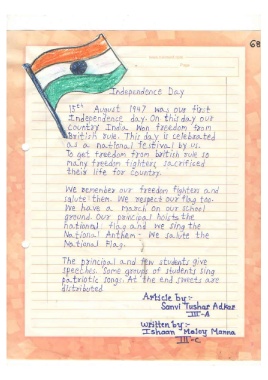 68
Independence Day
15th August 1947 was our first
Independence day. On this day our
country India won freedom from
British rule. This day is celebrated
as a national festival by us.
To get freedom from british rule so
many freedom fighters sacrificed
their life for country.
We remember our freedom fighters and
salute them. We respect our flag too.
We have a march on our school
ground. Our principal hoists the
national flag and we sing the
National Anthem. We salute the
National Flag.
The principal and few students give
speeches. Some groups of students sing
patriotic songs. At the end sweets are
distributed
Article by :-
Sanvi Tushar Adkar
III-A
Written by :-
Ishaan Moloy Manna
III-C